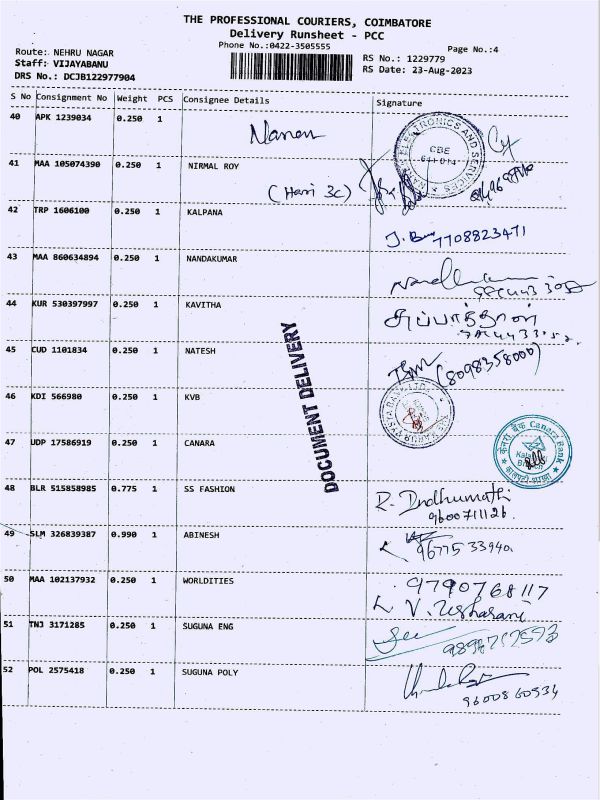 THE PROFESSIONAL COURIERS, COIMBATORE
Delivery Runsheet - PCC
Phone No.:0422-3505555
Page No.:4
Route: NEHRU NAGAR
Staff: VIJAYABANU
DRS No.: DCJB122977904
RS No.: 1229779
RS Date: 23-Aug-2023
S No Consignment No Weight PCS Consignee Details Signature
40 APK 1239034 0.250 1
ELECTRONICS AND SERVICES
CBE
641 014
41 MAA 105074390 0.250 1 NIRMAL ROY
(Hari 3C)
42 TRP 1606100 0.250 1 KALPANA
7708823471
43 MAA 860634894 0.250 1 NANDAKUMAR
44 KUR 530397997 0.250 1 KAVITHA
சுப்பாத்தாள்
45 CUD 1101834 0.250 1 NATESH
(8098358000)
DOCUMENT DELIVERY
46 KDI 566980 0.250 1 KVB
47 UDP 17586919 0.250 1 CANARA
केनरा बैंक Canara Bank
48 BLR 515858985 0.775 1 SS FASHION R. Indhumathi
9600711126.
49 SLM 326839387 0.990 1 ABINESH
50 MAA 102137932 0.250 1 WORLDITIES 9790768117
51 TNJ 3171285 0.250 1 SUGUNA ENG
52 POL 2575418 0.250 1 SUGUNA POLY
9600860934